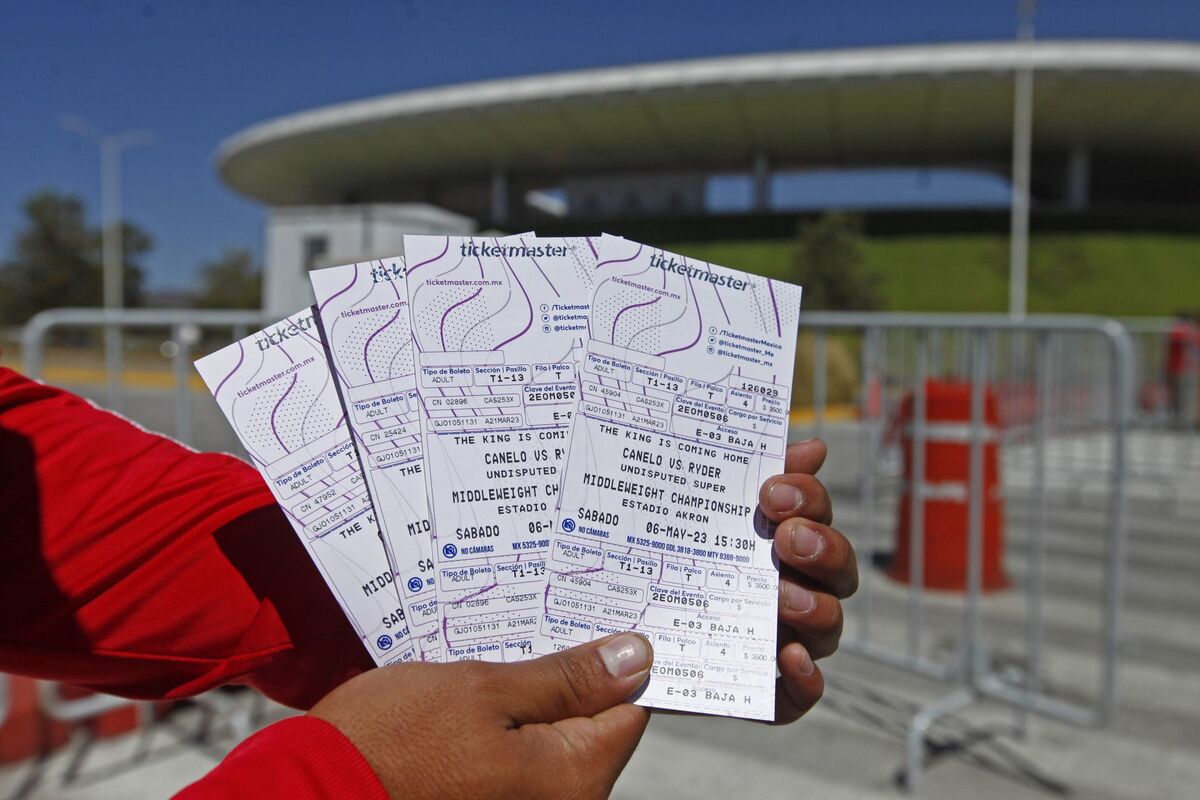 ticketmaster
ticketmaster.com.
Tipo de Boleto
ADULT
CN 47952
GJO1051131
THE K
MIDD
SÁB
NO C
ticketmaster.com
Tipo de Boleto
ADULT
CN 25424
GJO1051131
MI
ticketmaster
ticketmaster.com.mx
/Ticketm
@ticketm
@ticketm
Tipo de Boleto Sección | Pasillo Fila | Palco
ADULT T1-13 T
CN 02896 CAS253X 2EOM050
GJO1051131 A21MAR23 E-
THE KING IS COMING
CANELO VS R
UNDISPUTED
MIDDLEWEIGHT CH
ESTADIO
SABADO 06-
NO CÁMARAS MX 5325-900
Tipo de Boleto Sección
ADULT T1-1
CN 02896 CAS253X
GJO1051131 A21MAR
Tipo de Boleto Secci
ticketmaster
ticketmaster.com.mx
/TicketmasterMexico
@Ticketmaster_Me
@ticketmaster_mx
Tipo de Boleto Sección | Pasillo Fila | Palco Asiento Precio
126029
ADULT T1-13 T 4 $ 3500
CN 45904 CAS253X Clave del Evento Cargo por Servicio
2EOM0506 $
GJO1051131 A21MAR23 Acceso
E-03 BAJA H
THE KING IS COMING HOME
CANELO VS RYDER
UNDISPUTED SUPER
MIDDLEWEIGHT CHAMPIONSHIP
ESTADIO AKRON
SABADO 06-MAY-23 15:30H
NO CÁMARAS MX 5325-9000 GDL 3818-3800 MTY 8369-9000
Tipo de Boleto Sección | Pasillo Fila | Palco Asiento Precio
ADULT T1-13 T 4 $ 3500
CN 45904 CAS253X Clave del Evento Cargo por Servicio
2EOM0506 $
GJO1051131 A21MAR23 Acceso
E-03 BAJA H
Tipo de Boleto Fila | Palco Asiento Precio
ADULT T 4 $ 3500
Clave del Evento Cargo por Servicio
EOM0506 $
E-03 BAJA H